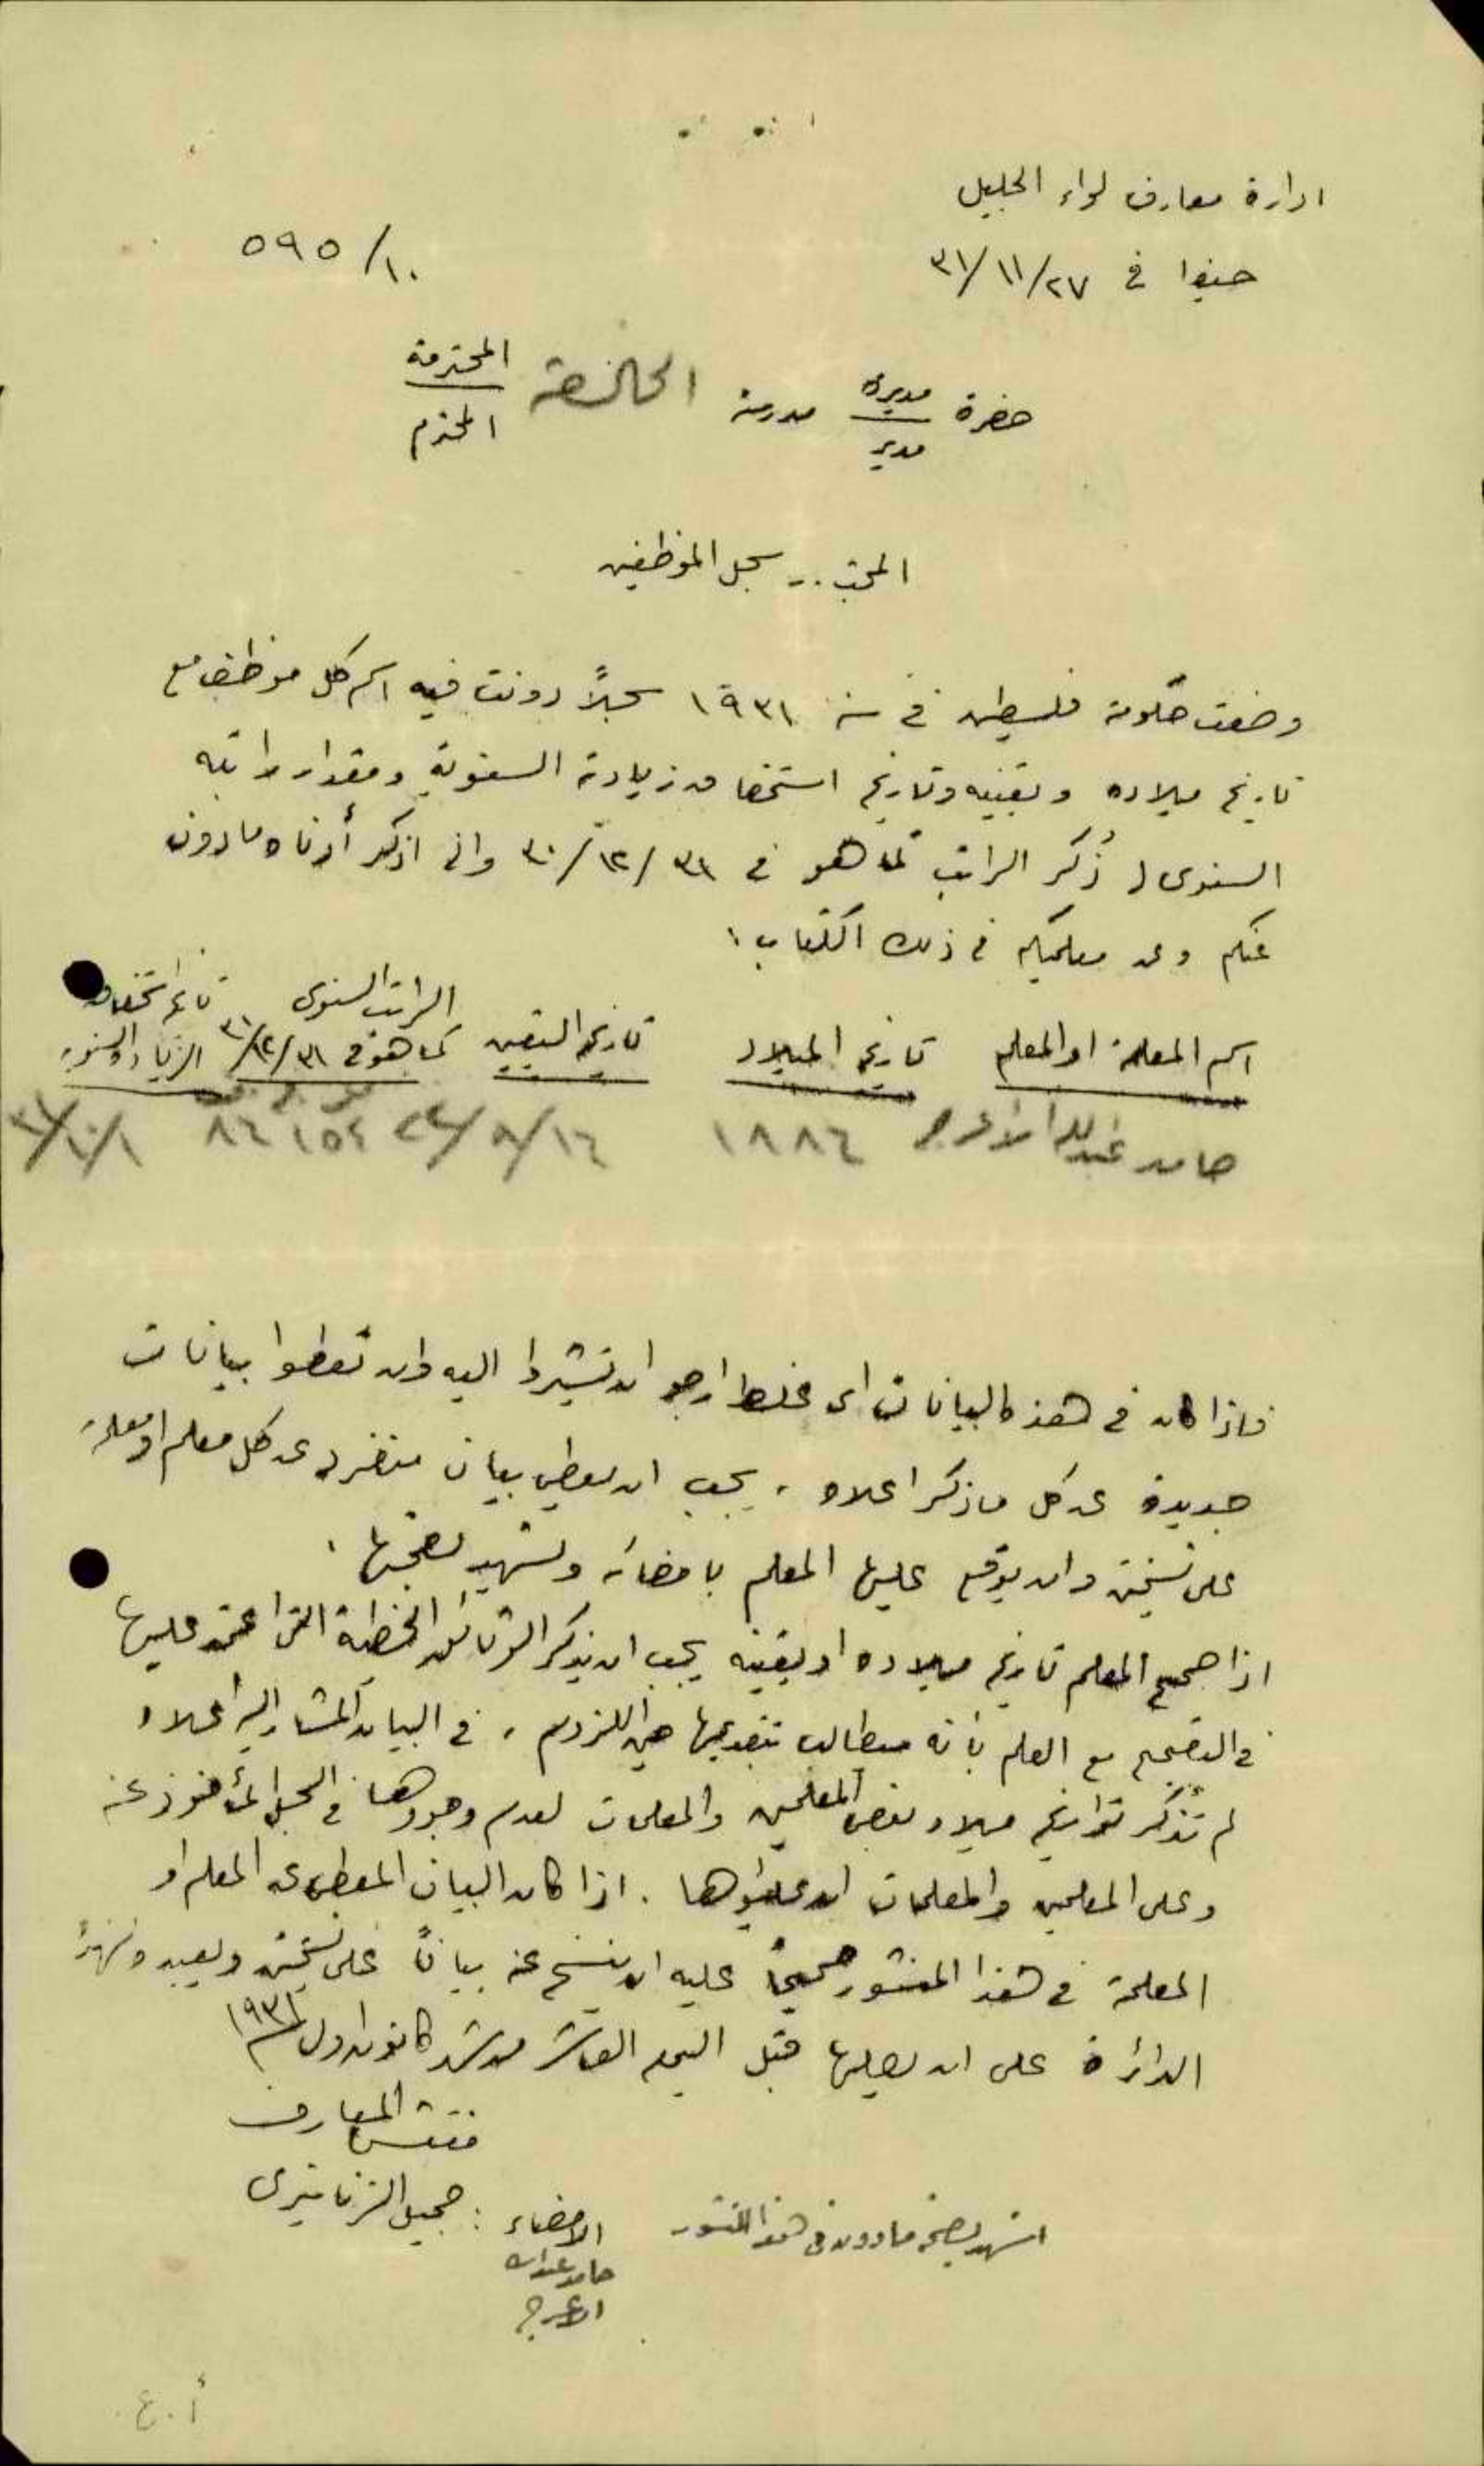 ادارة معارف لواء الجليل
حيفا في ٢٧/١١/٣١
١٠/٥٩٥
حضرة مديرة مدرسة الخالصة المحترمة
مدير المحترم
المبحث .. سجل الموظفين
وضعت حكومة فلسطين في سنة ١٩٣١ سجلاً دونت فيه اسم كل موظف مع
تاريخ ميلاده وتعيينه وتاريخ استحقاقه زيادته السنوية ومقدار راتبه
السنوي ذُكر الراتب كما هو في ٣١/١٢/٣٠ واني اذكر أدناه ما دون
عنكم وعن معلميكم في ذلك الكتاب :
اسم المعلمة او المعلم تاريخ الميلاد تاريخ التعيين الراتب السنوي كما هو في ٣١/١٢/٣١ تاريخ استحقاق الزيادة السنوية
حامد عبدالله الاعرج ١٨٨٦ ١٦/٨/٢٤ ١٥٢ ٨٦ ١/١٠/٣١
فاذا كان في هذه البيانات اي غلط ارجو ان تشيروا اليه وان تعطوا بيانات
جديدة عن كل ما ذكر اعلاه . يجب ان يعطي بيان منفرد عن كل معلم او معلمة
على نسختين وان يوقع عليها المعلم بامضائه ويشهد بصحتها .
اذا صحح المعلم تاريخ ميلاده او تعيينه يجب ان يذكر الوثائق الخطية التي اعتمد عليها
في التصحيح مع العلم بأنه مطالب بتقديمها حين اللزوم . في البيان المشار اليه اعلاه
لم تُذكر تواريخ ميلاد بعض المعلمين والمعلمات لعدم وجودها في السجل المأخوذ عنه
وعلى المعلمين والمعلمات ان يعطوها . اذا كان البيان المعطى عن المعلم او
المعلمة في هذا المنشور صحيحاً عليه ان ينسخ عنه بياناً على نسختين ويعيده لهذه
الدائرة على ان يصلها قبل اليوم العاشر من شهر كانون اول سنة ١٩٣١
مفتش المعارف
جميل الزنانيري
اشهد بصحة ما دون في هذا المنشور
الامضاء :
حامد عبدالله
الاعرج
أ . ع .